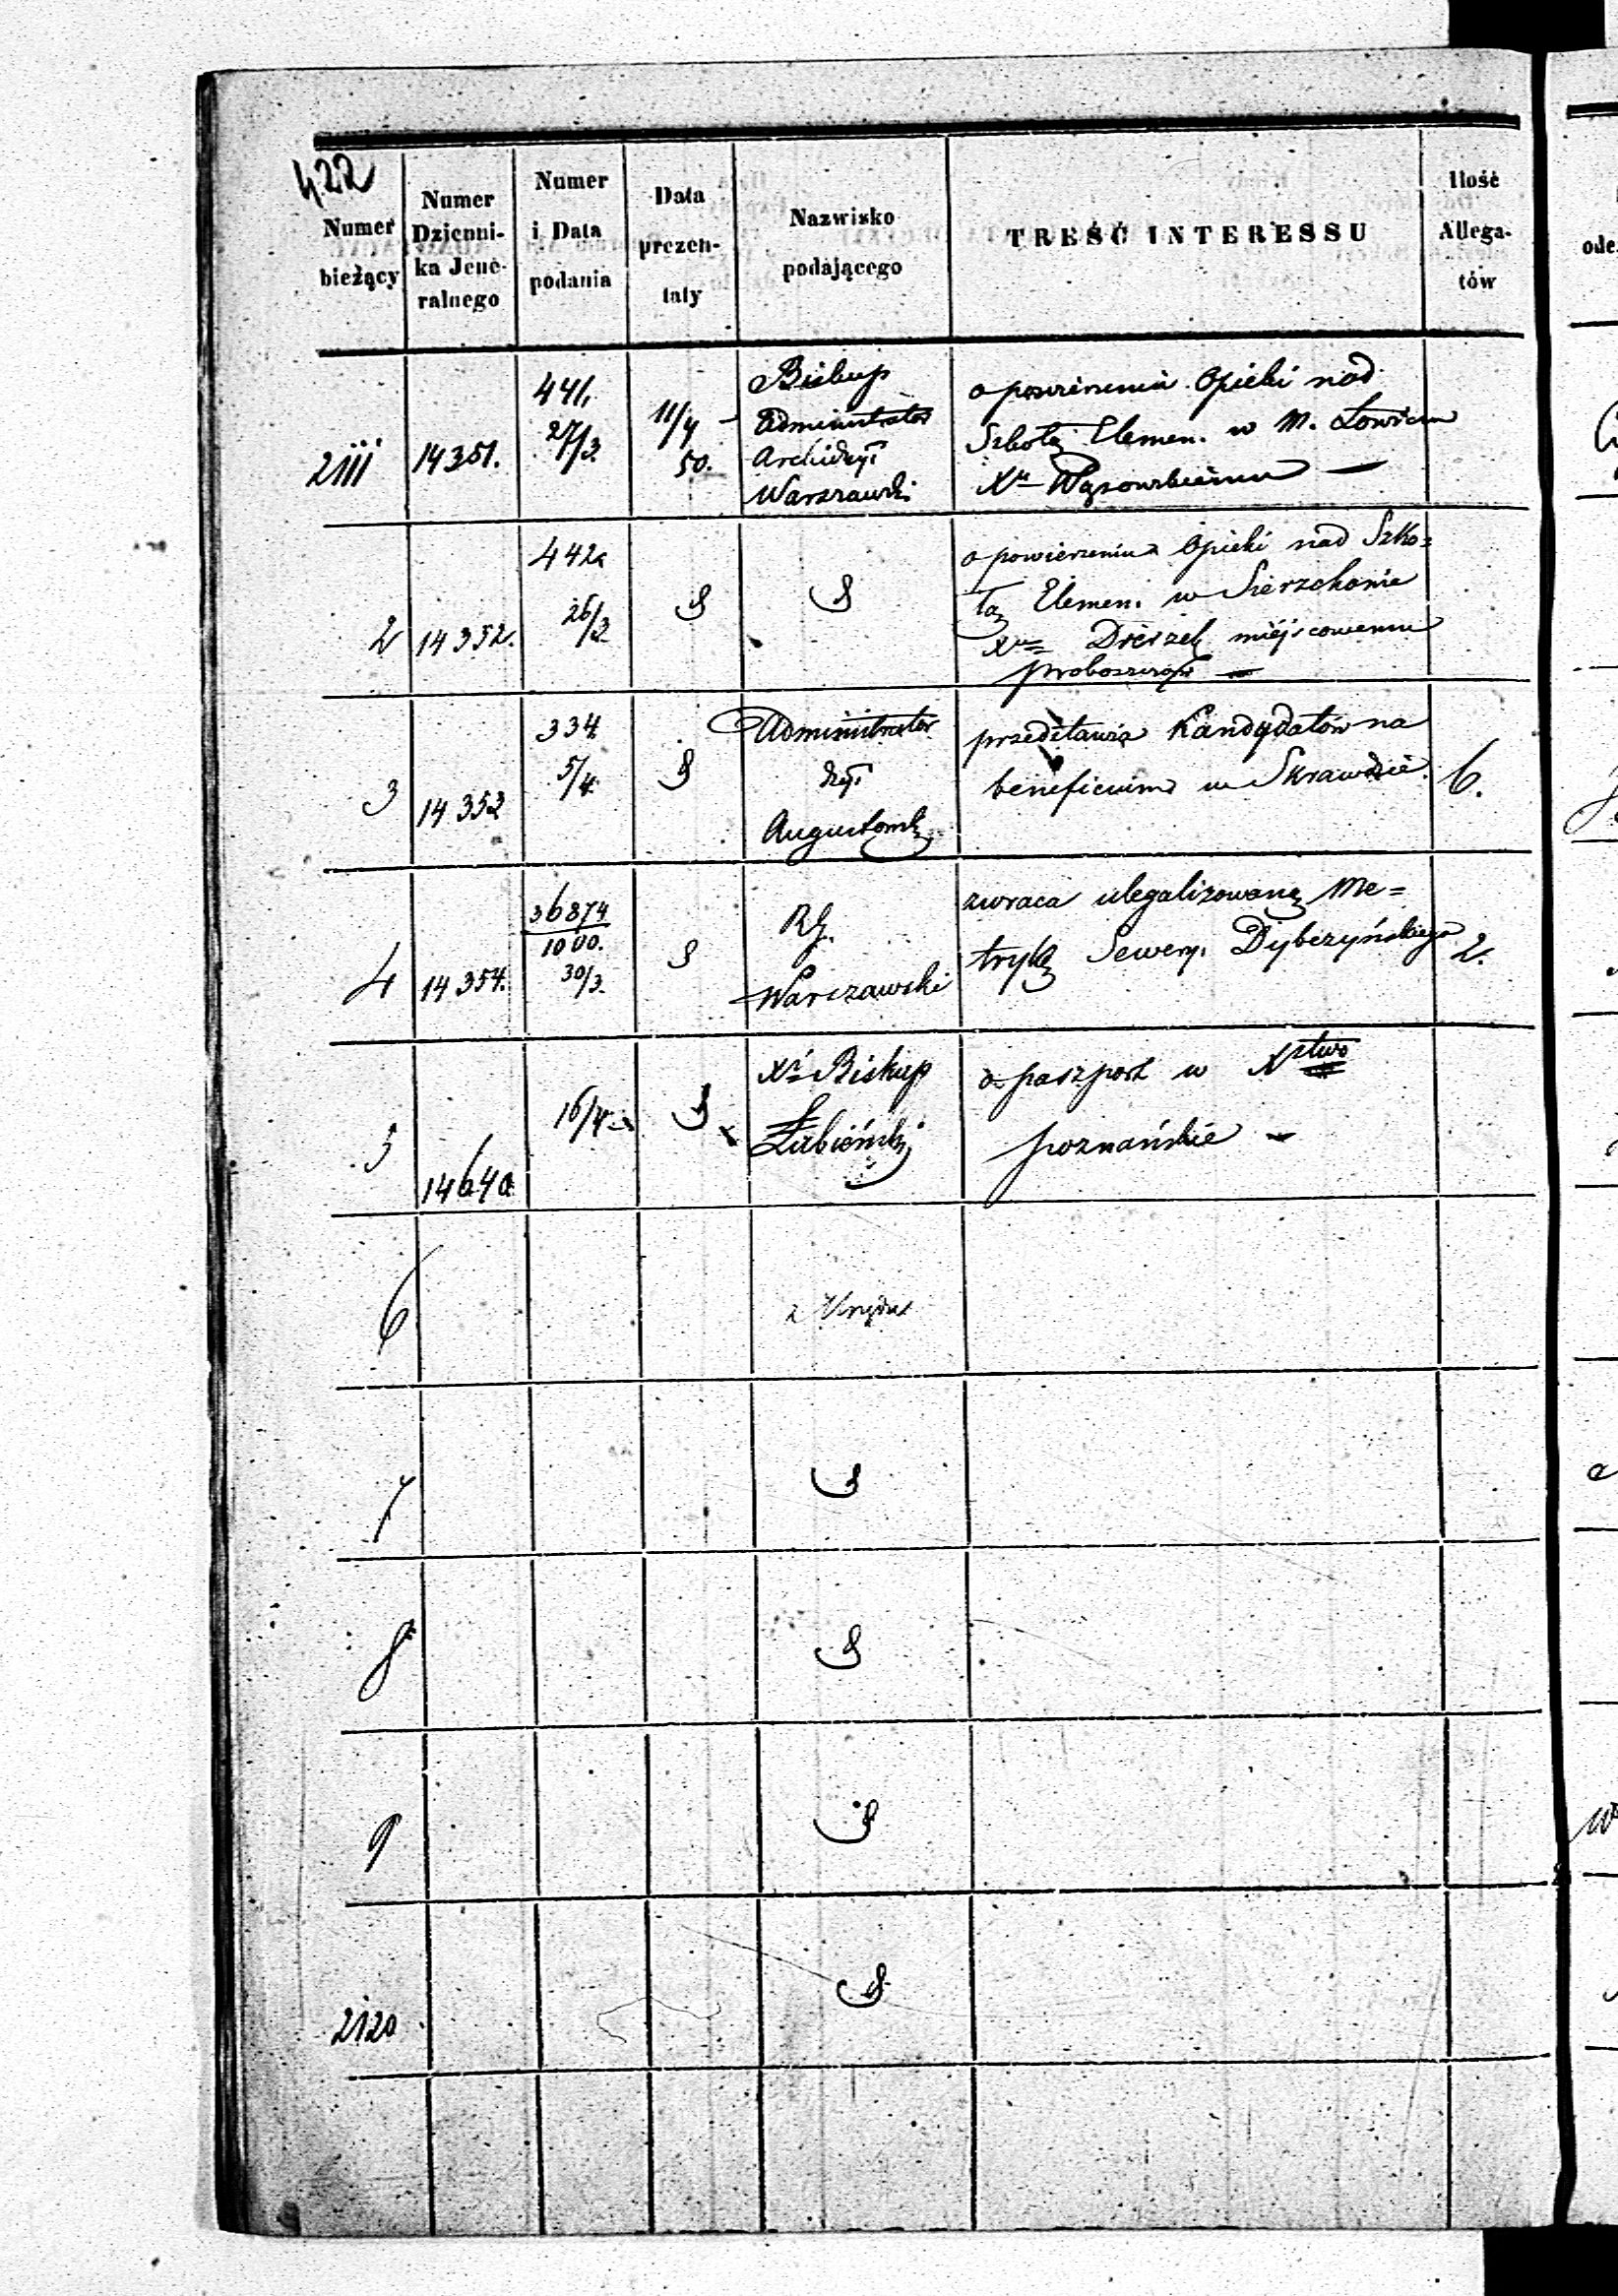 422
Numer bieżący
Numer Dzienni- ka Jene- ralnego
Numer i Data podania
Data prezen- taty
Nazwisko podającego
TREŚĆ INTERESSU
Ilość Allega- tów
2111
14351.
441,
27/3.
11/4
50.
Biskup
Administrator
Archidyi
Warszawski
o powierzenie Opieki nad
Szkołą Elemen. w M. Łowiczu
Xu Wąsowskiemu —
2
14352.
442
26/3
o powierzeniu Opieki nad Szko=
łą Elemen. w
Xu miejscowemu
3
14353
334
5/4.
Administrator
dyi
przedstawia Kandydatów na
beneficium w
6.
4
14354.
36874
1000.
30/3.
R.G.
Warszawski
zwraca ulegalizowaną Me=
trykę Sewery. Dybczyńskiego
2.
5
14640
16/4
X. Biskup
Łubieński
o paszport w Xstwo
poznańskie —
6
z Urzędu
7
8
9
2120